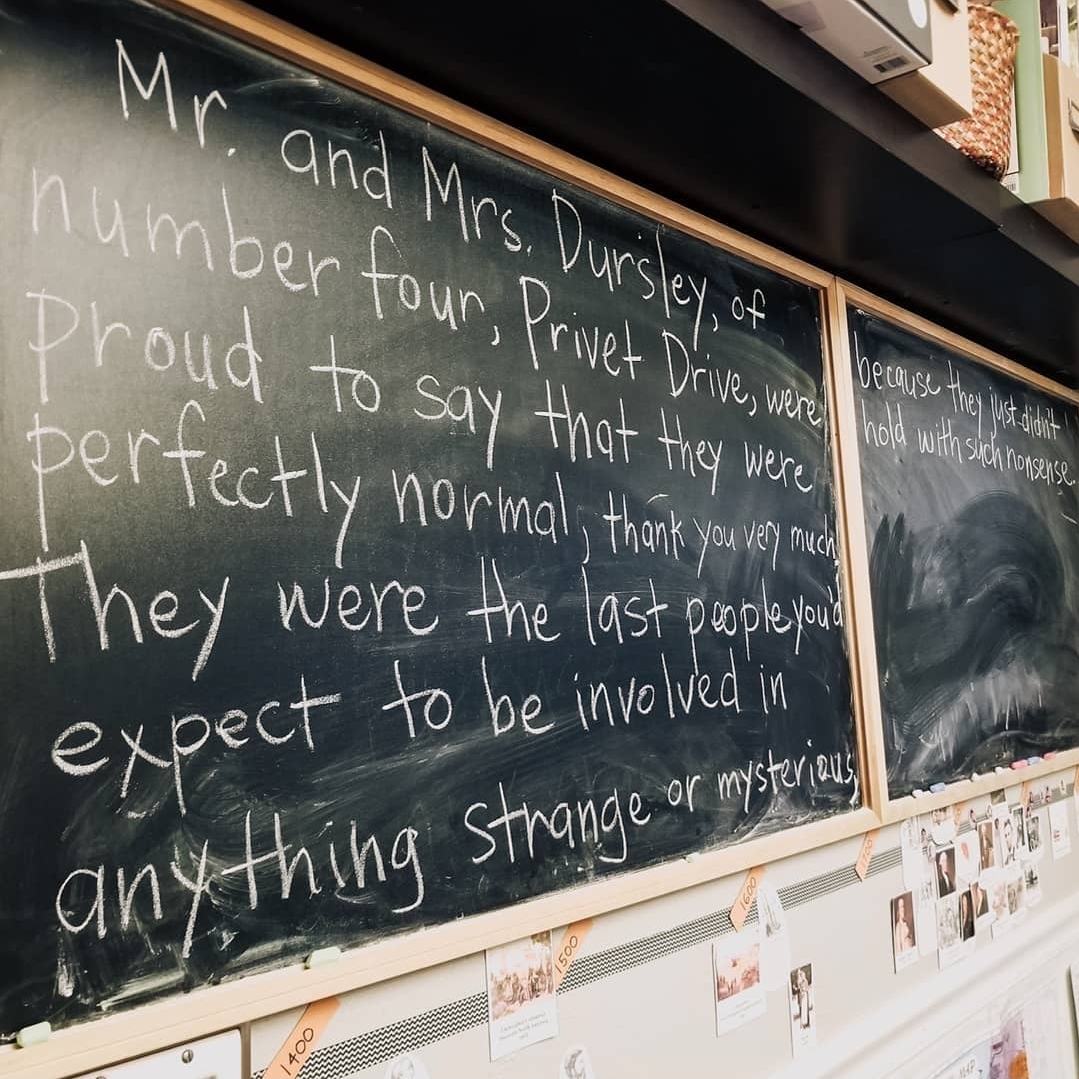 Mr. and Mrs. Dursley, of
number four, Privet Drive, were
proud to say that they were
perfectly normal, thank you very much.
They were the last people you'd
expect to be involved in
anything strange or mysterious,
because they just didn't
hold with such nonsense.
1400
1500
1600
1700
MAP